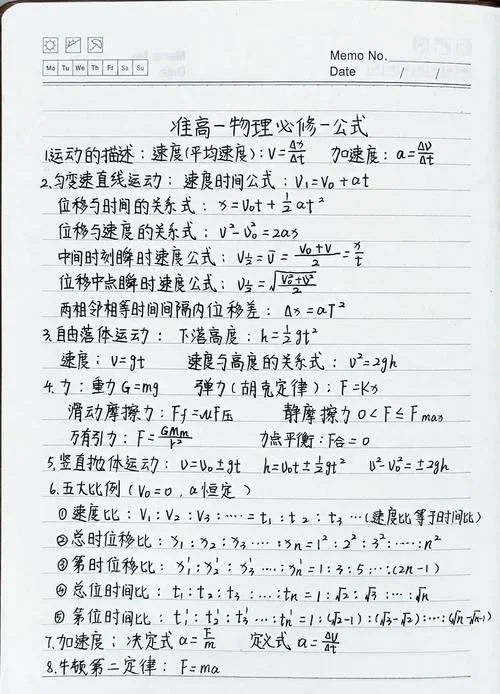 Memo No.
Mo Tu We Th Fr Sa Su
Date / /
准高一物理必修一公式
1.运动的描述：速度(平均速度)：v=Δx/Δt 加速度：a=Δv/Δt
2.匀变速直线运动：速度时间公式：V₁=V₀+at
位移与时间的关系式：x=V₀t+½at²
位移与速度的关系式：V²-V₀²=2ax
中间时刻瞬时速度公式：V½=v̄=(V₀+V)/2=x/t
位移中点瞬时速度公式：V½=√((V₀²+V²)/2)
两相邻相等时间间隔内位移差：Δx=aT²
3.自由落体运动：下落高度：h=½gt²
速度：v=gt 速度与高度的关系式：v²=2gh
4.力：重力G=mg 弹力(胡克定律)：F=Kx
滑动摩擦力：Ff=μF压 静摩擦力0<F≤Fmax
万有引力：F=GMm/r² 力点平衡：F合=0
5.竖直抛体运动：v=V₀±gt h=V₀t±½gt² V²-V₀²=±2gh
6.五大比例(V₀=0，a恒定)
①速度比：V₁:V₂:V₃:……=t₁:t₂:t₃…(速度比等于时间比)
②总时位移比：x₁:x₂:x₃…:xn=1²:2²:3²:…:n²
③第时位移比：x₁′:x₂′:x₃′…:xn′=1:3:5:…:(2n-1)
④总位时间比：t₁:t₂:t₃:…:tn=1:√2:√3:…:√n
⑤第位时间比：t₁′:t₂′:t₃′…:tn′=1:(√2-1):(√3-√2):…:(√n-√n-1)
7.加速度：决定式a=F/m 定义式a=Δv/Δt
8.牛顿第二定律：F=ma